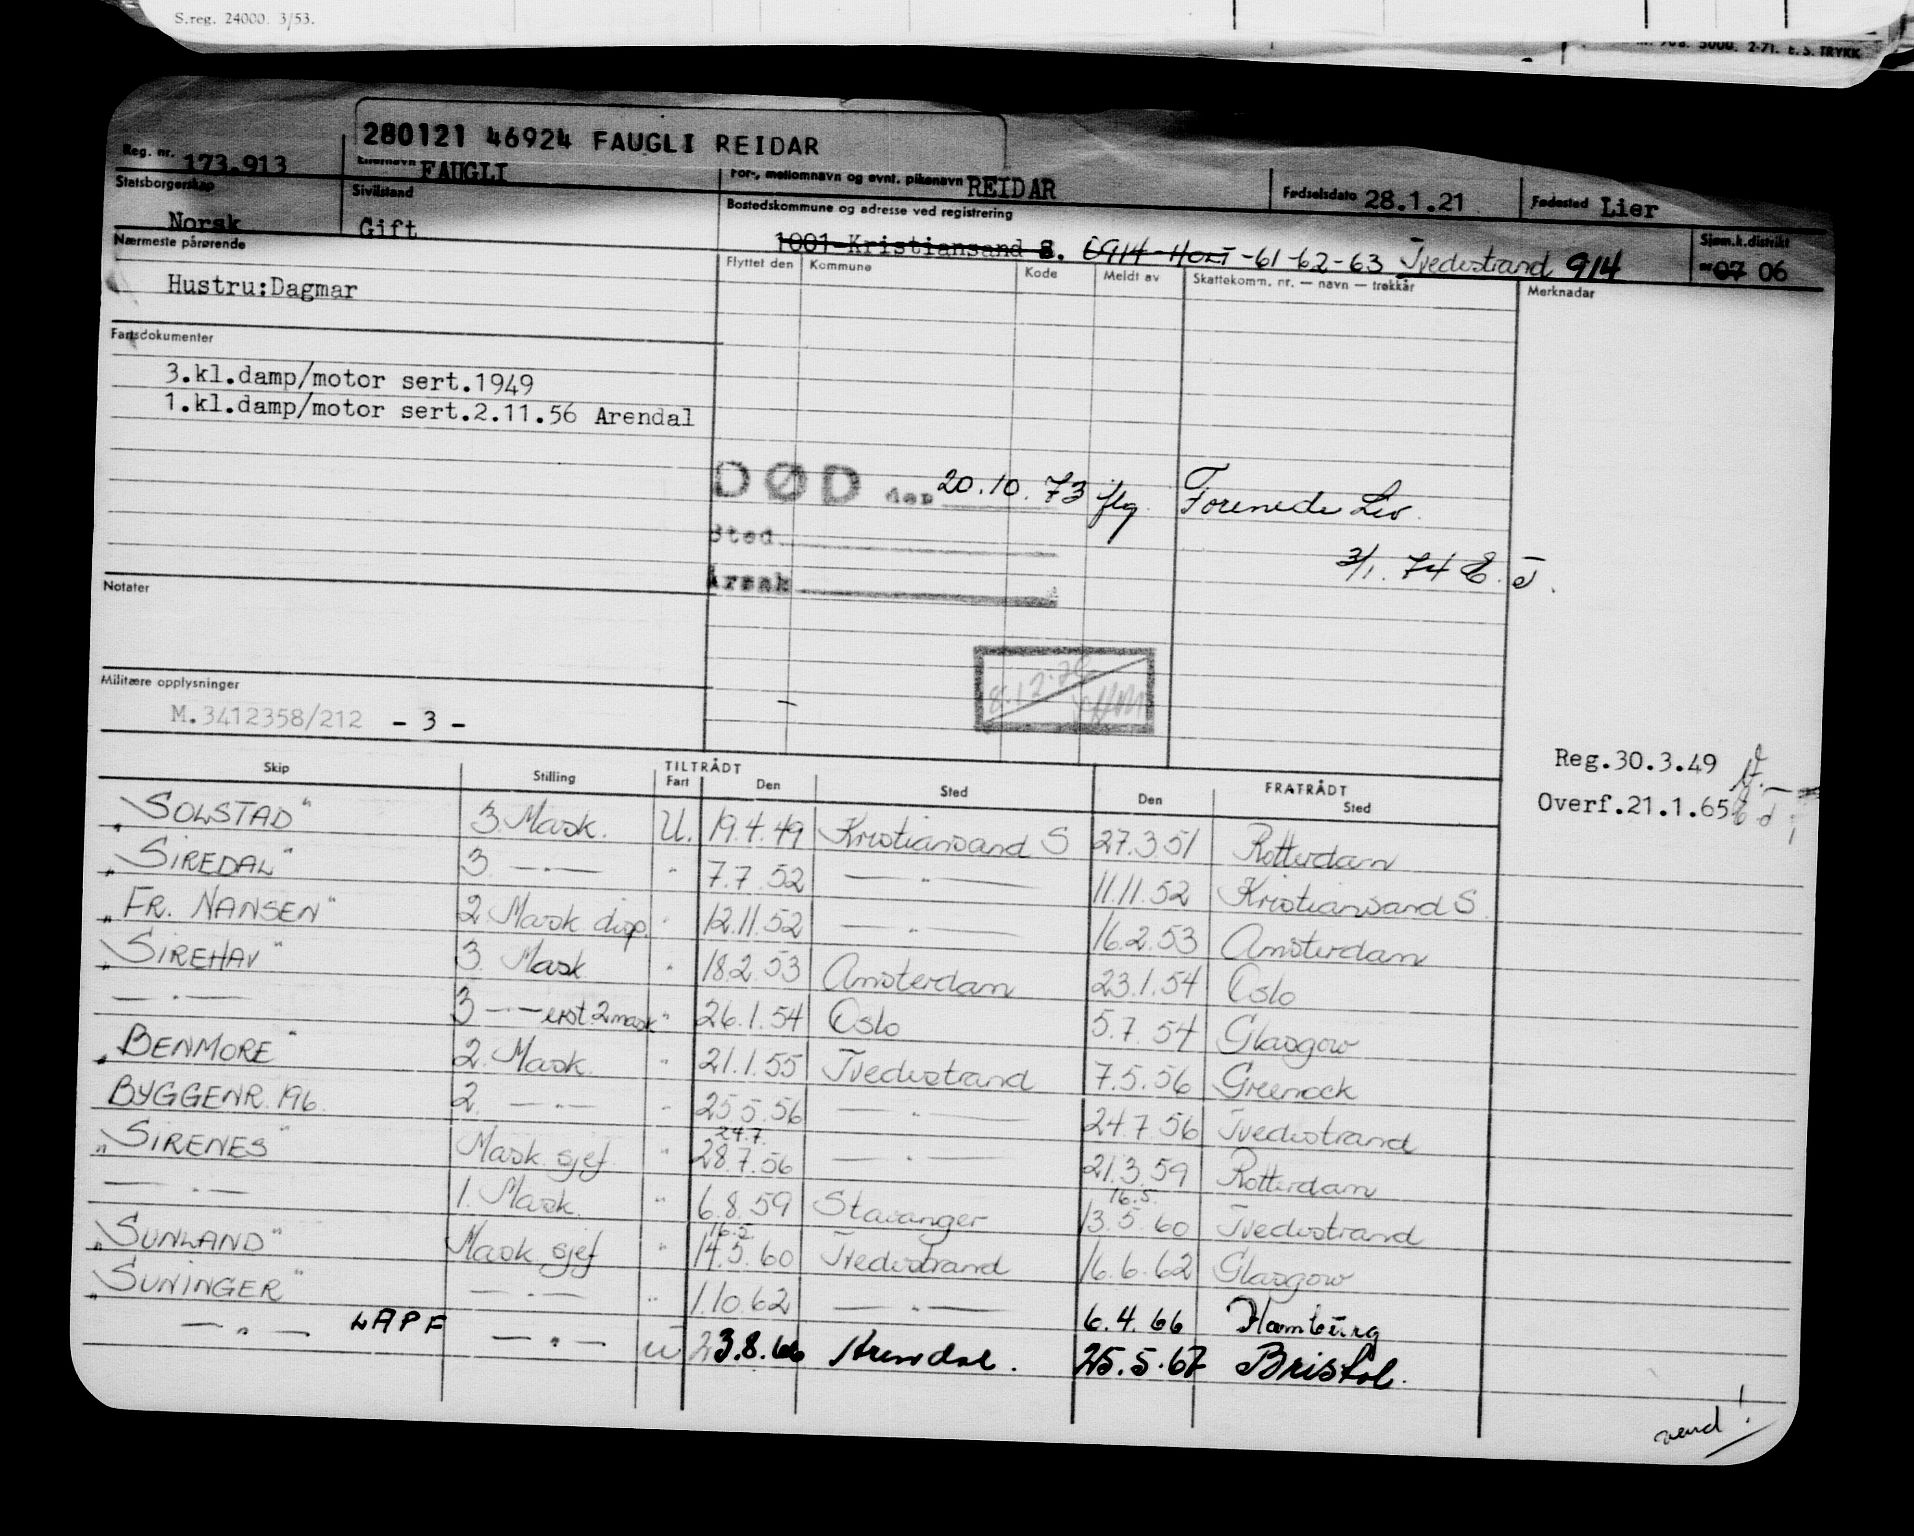 S.reg. 24000. 3/53.
5000. 2-71. E.S. TRYKK
280121 46924 FAUGLI REIDAR
Reg. nr. 173.913 Etternavn FAUGLI For-, mellomnavn og evnt. pikenavn REIDAR Fødselsdato 28.1.21 Fødested Lier
Statsborgerskap Norsk Sivilstand Gift Bostedskommune og adresse ved registrering
1001-Kristiansand S. 0914-HOLT-61-62-63 Tvedestrand 914 Sjøm.k.distrikt 07 06
Nærmeste pårørende Flyttet den Kommune Kode Meldt av Skattekomm. nr. — navn — trekkår Merknader
Hustru:Dagmar
Fartsdokumenter
3.kl.damp/motor sert.1949
1.kl.damp/motor sert.2.11.56 Arendal
DØD den 20.10.73 flg. Forenede Liv.
Sted
3/1. 74 E. J.
Årsak
Notater
Militære opplysninger
M.3412358/212 - 3 -
Reg.30.3.49
Overf.21.1.65
Skip Stilling TILTRÅDT Fart Den Sted FRATRÅDT Den Sted
"SOLSTAD" 3 Mask. U. 19.4.49 Kristiansand S 27.3 51 Rotterdam
"SIREDAL" 3 —·— " 7.7.52 — " — 11.11.52 Kristiansand S.
"FR. NANSEN" 2 Mask disp. " 12.11.52 — " — 16.2.53 Amsterdam
"SIREHAV" 3. Mask " 18.2.53 Amsterdam 23.1.54 Oslo
— " — 3 —·— erst. 2 mask " 26.1.54 Oslo 5.7.54 Glasgow
"BENMORE" 2. Mask. " 21.1.55 Tvedestrand 7.5.56 Greenock
BYGGENR. 196. 2. — " — " 25.5.56 — " — 24.7.56 Tvedestrand
24.7.
"SIRENES" Mask. sjef. " 28.7.56 — " — 21.3.59 Rotterdam
16.5.
— " — 1. Mask. " 6.8.59 Stavanger 13.5.60 Tvedestrand
16.5
"SUNLAND" Mask sjef " 14.5.60 Tvedestrand 16.6.62 Glasgow
"SUNINGER" — " — " 1.10.62 — " — 6.4.66 Hamburg
— " — LAPF — " — u 23.8.66 Arendal. 25.5.67 Bristol.
vend!